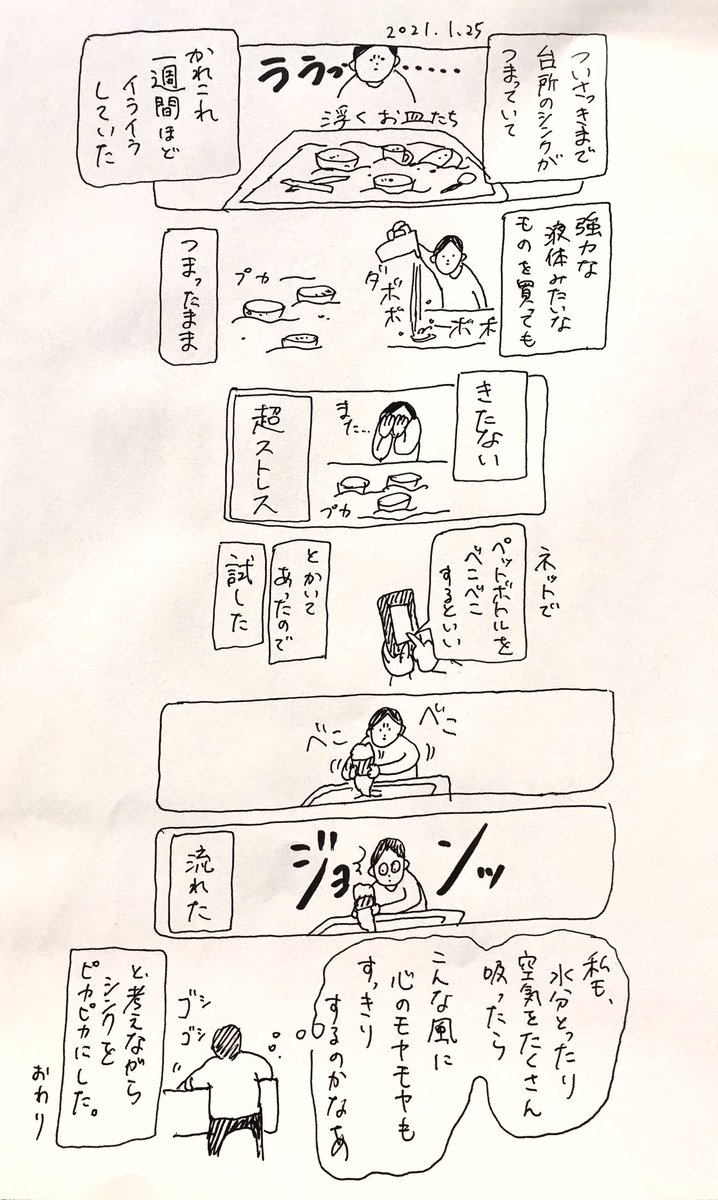 2021.1.25
ついさっきまで
台所のシンクが
つまっていて
ララっ……
浮くお皿たち
かれこれ
一週間ほど
イライラ
していた
強力な
液体みたいな
ものを買っても
ダボボ
ーボボ
プカー
つまったまま
きたない
また…
プカ
超ストレス
ネットで
ペットボトルを
べこべこ
するといい
とかいて
あったので
試した
べこ
べこ
ジョンッ
流れた
私も、
水分とったり
空気をたくさん
吸ったら
こんな風に
心のモヤモヤも
すっきり
するのかなあ
ゴシ
ゴシ
と、考えながら
シンクを
ピカピカにした。
おわり